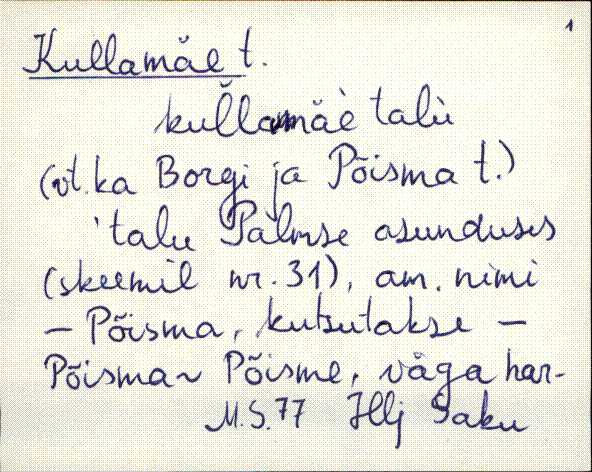 1
Kullamäe t.
kul̆lamäè talù
(vt. ka Borgi ja Põisma t.)
'talu Palmse asunduses
(skeemil nr. 31), am. nimi
– Põisma, kutsutakse –
Põisma ~ Põisme, väga har-
M.S. 77 Hlj